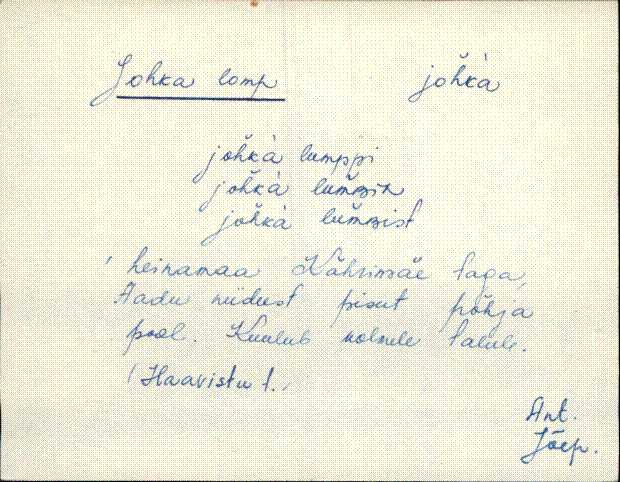 Johka lomp joh̆kà
joh̆kà lumppi
joh̆kà lum̆min
joh̆kà lum̆mist
heinamaa Kährimäe taga,
Aadu niidust pisut põhja
pool. Kuulub kolmele talule.
(Haavistu t.)
Ant.
Jõep.